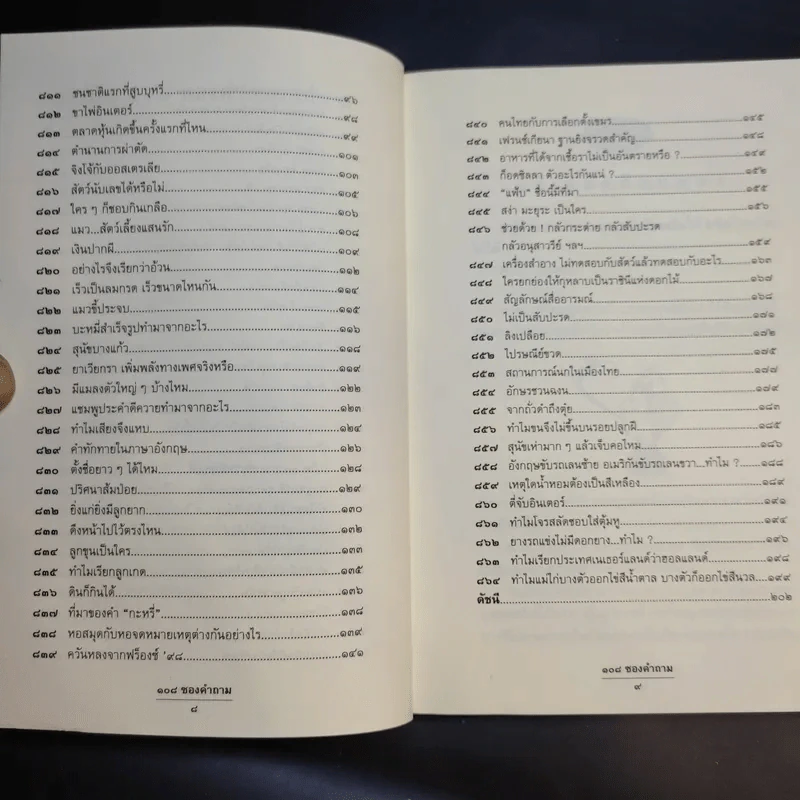 ๘๑๑ ชนชาติแรกที่สูบบุหรี่..........๙๖
๘๑๒ ขาไพ่อินเตอร์..........๙๘
๘๑๓ ตลาดหุ้นเกิดขึ้นครั้งแรกที่ไหน..........๙๙
๘๑๔ ตำนานการผ่าตัด..........๑๐๑
๘๑๕ จิงโจ้กับออสเตรเลีย..........๑๐๓
๘๑๖ สัตว์นับเลขได้หรือไม่..........๑๐๕
๘๑๗ ใคร ๆ ก็ชอบกินเกลือ..........๑๐๖
๘๑๘ แมว...สัตว์เลี้ยงแสนรัก..........๑๐๘
๘๑๙ เงินปากผี..........๑๐๙
๘๒๐ อย่างไรจึงเรียกว่าอ้วน..........๑๑๒
๘๒๑ เร็วเป็นลมกรด เร็วขนาดไหนกัน..........๑๑๔
๘๒๒ แมวขี้ประจบ..........๑๑๕
๘๒๓ บะหมี่สำเร็จรูปทำมาจากอะไร..........๑๑๖
๘๒๔ สุนัขบางแก้ว..........๑๑๘
๘๒๕ ยาเวียกรา เพิ่มพลังทางเพศจริงหรือ..........๑๑๙
๘๒๖ มีแมลงตัวใหญ่ ๆ บ้างไหม..........๑๒๒
๘๒๗ แชมพูประคำดีควายทำมาจากอะไร..........๑๒๓
๘๒๘ ทำไมเสียงจึงแหบ..........๑๒๔
๘๒๙ คำทักทายในภาษาอังกฤษ..........๑๒๖
๘๓๐ ตั้งชื่อยาว ๆ ได้ไหม..........๑๒๘
๘๓๑ ปริศนาส้มป่อย..........๑๒๙
๘๓๒ ยิ่งแก่ยิ่งมีลูกยาก..........๑๓๐
๘๓๓ ดึงหน้าไปไว้ตรงไหน..........๑๓๑
๘๓๔ ลูกขุนเป็นใคร..........๑๓๓
๘๓๕ ทำไมเรียกลูกเกด..........๑๓๕
๘๓๖ ดินก็กินได้..........๑๓๖
๘๓๗ ที่มาของคำ “กะหรี่”..........๑๓๘
๘๓๘ หอสมุดกับหอจดหมายเหตุต่างกันอย่างไร..........๑๓๙
๘๓๙ ควันหลงจากฟร็องซ์ ’๙๘..........๑๔๑
๑๐๘ ซองคำถาม
๘
๘๔๐ คนไทยกับการเลือกตั้งเขมร..........๑๔๕
๘๔๑ เฟรนช์เกียนา ฐานยิงจรวดสำคัญ..........๑๔๘
๘๔๒ อาหารที่ได้จากเชื้อราไม่เป็นอันตรายหรือ ?..........๑๔๙
๘๔๓ ก็อดซิลลา ตัวอะไรกันแน่ ?..........๑๕๒
๘๔๔ “แฟ้บ” ชื่อนี้มีที่มา..........๑๕๕
๘๔๕ สง่า มะยุระ เป็นใคร..........๑๕๖
๘๔๖ ช่วยด้วย ! กลัวกระต่าย กลัวสับปะรด
กลัวอนุสาวรีย์ ฯลฯ..........๑๕๙
๘๔๗ เครื่องสำอาง ไม่ทดสอบกับสัตว์แล้วทดสอบกับอะไร..........๑๖๓
๘๔๘ ใครยกย่องให้กุหลาบเป็นราชินีแห่งดอกไม้..........๑๖๗
๘๔๙ สัญลักษณ์สื่ออารมณ์..........๑๖๘
๘๕๐ ไม่เป็นสับปะรด..........๑๗๑
๘๕๑ ลิงเปลือย..........๑๗๒
๘๕๒ ไปรษณีย์ขวด..........๑๗๕
๘๕๓ สถานการณ์นกในเมืองไทย..........๑๗๗
๘๕๔ อักษรชวนฉงน..........๑๗๙
๘๕๕ จากถั่วดำถึงตุ๋ย..........๑๘๓
๘๕๖ ทำไมขนจึงไม่ขึ้นบนรอยปลูกฝี..........๑๘๕
๘๕๗ สุนัขเห่ามาก ๆ แล้วเจ็บคอไหม..........๑๘๖
๘๕๘ อังกฤษขับรถเลนซ้าย อเมริกันขับรถเลนขวา...ทำไม ?..........๑๘๘
๘๕๙ เหตุใดน้ำหอมต้องเป็นสีเหลือง..........๑๘๙
๘๖๐ ตี่จับอินเตอร์..........๑๙๑
๘๖๑ ทำไมโจรสลัดชอบใส่ตุ้มหู..........๑๙๔
๘๖๒ ยางรถแข่งไม่มีดอกยาง...ทำไม ?..........๑๙๖
๘๖๓ ทำไมเรียกประเทศเนเธอร์แลนด์ว่าฮอลแลนด์..........๑๙๘
๘๖๔ ทำไมแม่ไก่บางตัวออกไข่สีน้ำตาล บางตัวก็ออกไข่สีนวล....๑๙๙
ดัชนี..........๒๐๒
๑๐๘ ซองคำถาม
๙